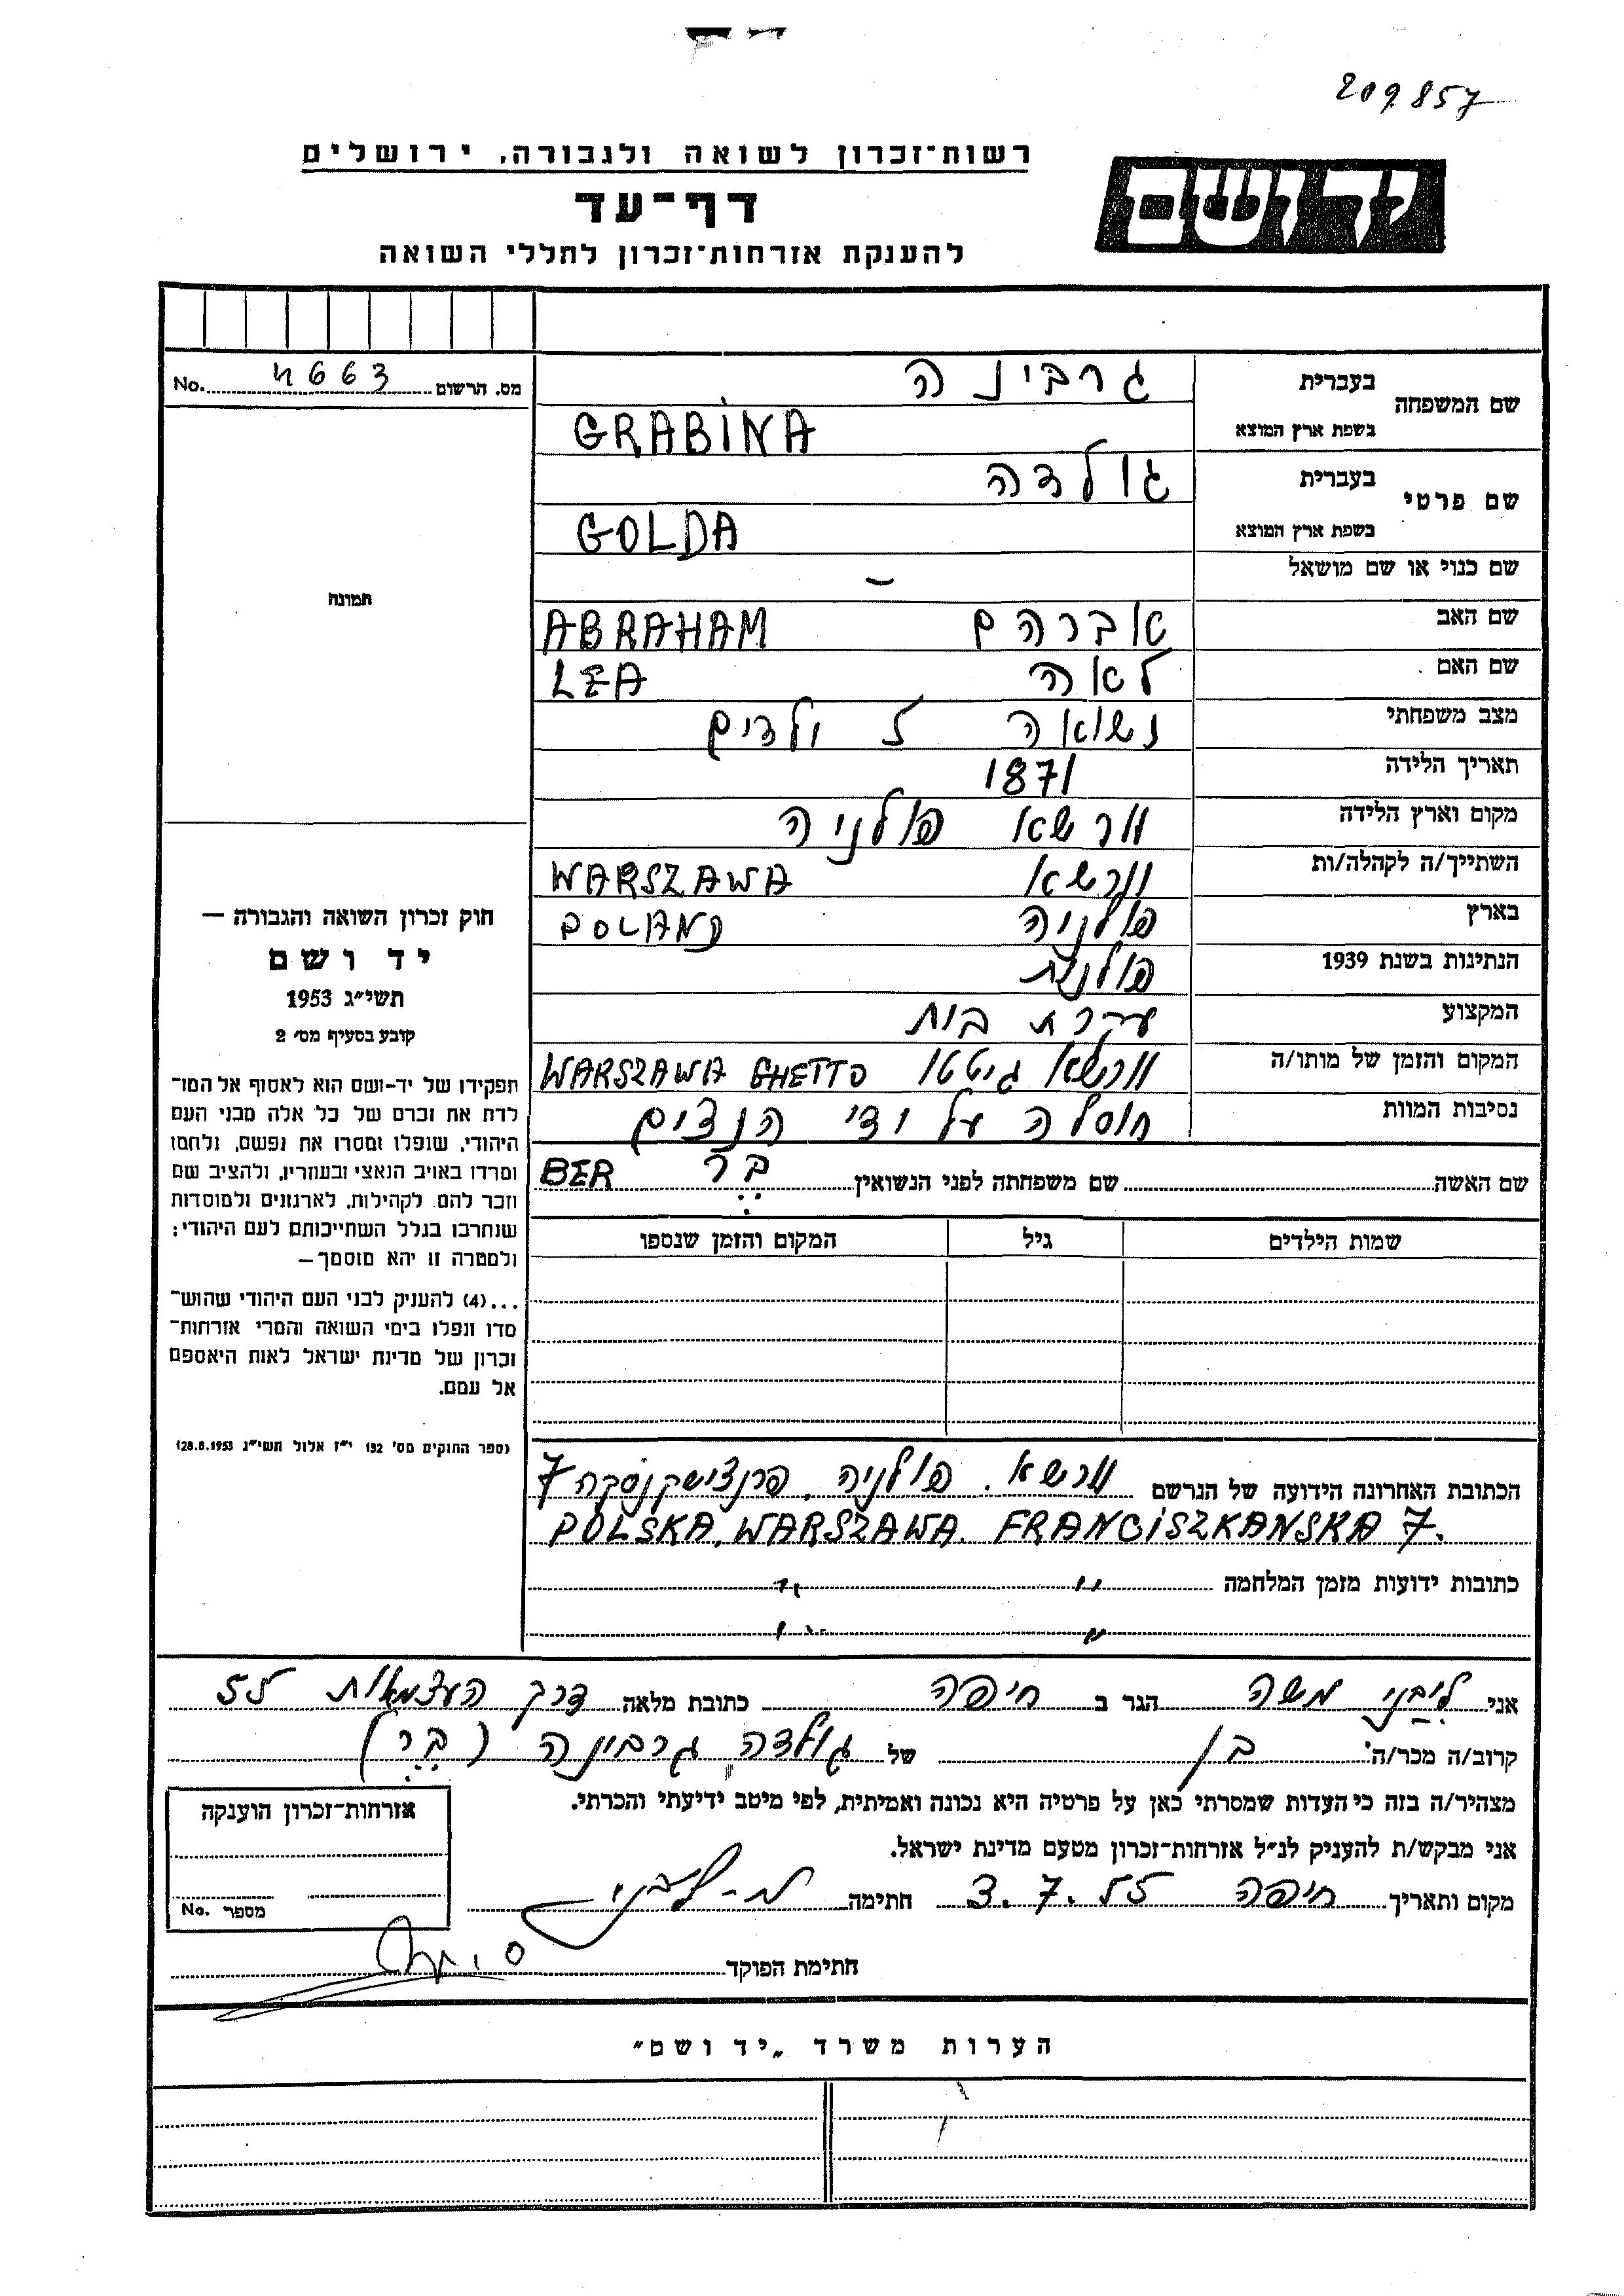 209857
רשות־זכרון לשואה ולגבורה, ירושלים
יד ושם
דף־עד
להענקת אזרחות־זכרון לחללי השואה
מס. הרשום 4663 No.
שם המשפחה בעברית גרבינה
בשפת ארץ המוצא GRABINA
שם פרטי בעברית גולדה
בשפת ארץ המוצא GOLDA
שם כנוי או שם מושאל –
שם האב אברהם ABRAHAM
שם האם לאה LEA
מצב משפחתי נשואה 5 ילדים
תאריך הלידה 1871
מקום וארץ הלידה וורשא פולניה
השתייך/ה לקהלה/ות וורשא WARSZAWA
בארץ פולניה POLAND
הנתינות בשנת 1939 פולנית
המקצוע עקרת בית
המקום והזמן של מותו/ה וורשא גיטטו WARSZAWA GHETTO
נסיבות המוות חוסלה על ידי הנצים
שם האשה שם משפחתה לפני הנשואין בר BER
שמות הילדים גיל המקום והזמן שנספו
הכתובת האחרונה הידועה של הנרשם וורשא. פולניה, פרנצישקנסקה 7
POLSKA, WARSZAWA. FRANCISZKANSKA 7.
כתובות ידועות מזמן המלחמה " "
" "
תמונה
חוק זכרון השואה והגבורה —
יד ושם
תשי״ג 1953
קובע בסעיף מס׳ 2
תפקידו של יד־ושם הוא לאסוף אל המו־
לדת את זכרם של כל אלה מבני העם
היהודי, שנפלו ומסרו את נפשם, נלחמו
ומרדו באויב הנאצי ובעוזריו, ולהציב שם
וזכר להם לקהילות, לארגונים ולמוסדות
שנחרבו בגלל השתייכותם לעם היהודי;
ולמטרה זו יהא מוסמך—
...(4) להעניק לבני העם היהודי שהוש־
מדו ונפלו בימי השואה והמרי אזרחות־
זכרון של מדינת ישראל לאות היאספם
אל עמם.
(ספר החוקים מס׳ 132 י״ז אלול תשי״ג 28.8.1953)
אני ליבני משה הגר ב חיפה כתובת מלאה דרך העצמאות 55
קרוב/ה מכר/ה בן של גולדה גרבינה (בר)
מצהיר/ה בזה כי העדות שמסרתי כאן על פרטיה היא נכונה ואמיתית, לפי מיטב ידיעתי והכרתי.
אני מבקש/ת להעניק לנ״ל אזרחות־זכרון מטעם מדינת ישראל.
מקום ותאריך חיפה 3.7.55 חתימה מ-ליבני
חתימת הפוקד
אזרחות־זכרון הוענקה
מספר No.
הערות משרד „יד ושם״